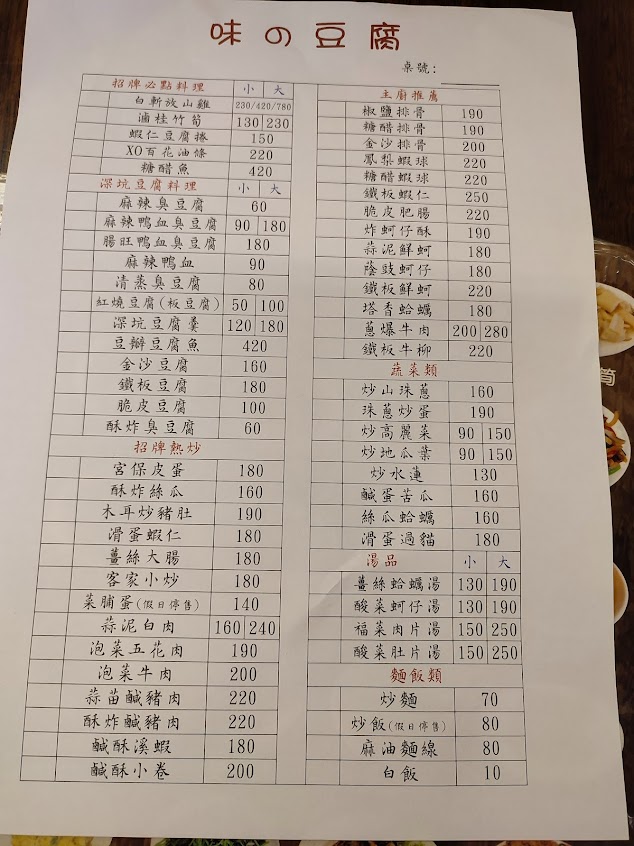 味の豆腐
桌號：
招牌必點料理 小 大
白斬放山雞 230/420/780
滷桂竹筍 130 230
蝦仁豆腐捲 150
XO百花油條 220
糖醋魚 420
深坑豆腐料理 小 大
麻辣臭豆腐 60
麻辣鴨血臭豆腐 90 180
腸旺鴨血臭豆腐 180
麻辣鴨血 90
清蒸臭豆腐 80
紅燒豆腐(板豆腐) 50 100
深坑豆腐羹 120 180
豆瓣豆腐魚 420
金沙豆腐 160
鐵板豆腐 180
脆皮豆腐 100
酥炸臭豆腐 60
招牌熱炒
宮保皮蛋 180
酥炸絲瓜 160
木耳炒豬肚 190
滑蛋蝦仁 180
薑絲大腸 180
客家小炒 180
菜脯蛋(假日停售) 140
蒜泥白肉 160 240
泡菜五花肉 190
泡菜牛肉 200
蒜苗鹹豬肉 220
酥炸鹹豬肉 220
鹹酥溪蝦 180
鹹酥小卷 200
主廚推薦
椒鹽排骨 190
糖醋排骨 190
金沙排骨 200
鳳梨蝦球 220
糖醋蝦球 220
鐵板蝦仁 250
脆皮肥腸 220
炸蚵仔酥 190
蒜泥鮮蚵 180
蔭豉蚵仔 180
鐵板鮮蚵 220
塔香蛤蠣 180
蔥爆牛肉 200 280
鐵板牛柳 220
蔬菜類
炒山珠蔥 160
珠蔥炒蛋 190
炒高麗菜 90 150
炒地瓜葉 90 150
炒水蓮 130
鹹蛋苦瓜 160
絲瓜蛤蠣 160
滑蛋過貓 180
湯品 小 大
薑絲蛤蠣湯 130 190
酸菜蚵仔湯 130 190
福菜肉片湯 150 250
酸菜肚片湯 150 250
麵飯類
炒麵 70
炒飯(假日停售) 80
麻油麵線 80
白飯 10
筒